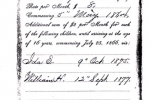 Rate per month $ 8.
Commencing 5th May 1864.
Additional sum of $2 per month for each
of the following children, until arriving at the
age of 16 years, commencing July 25, 1866, viz:
John C. 9th Oct. 1875.
William H. 12th Sept. 1877.